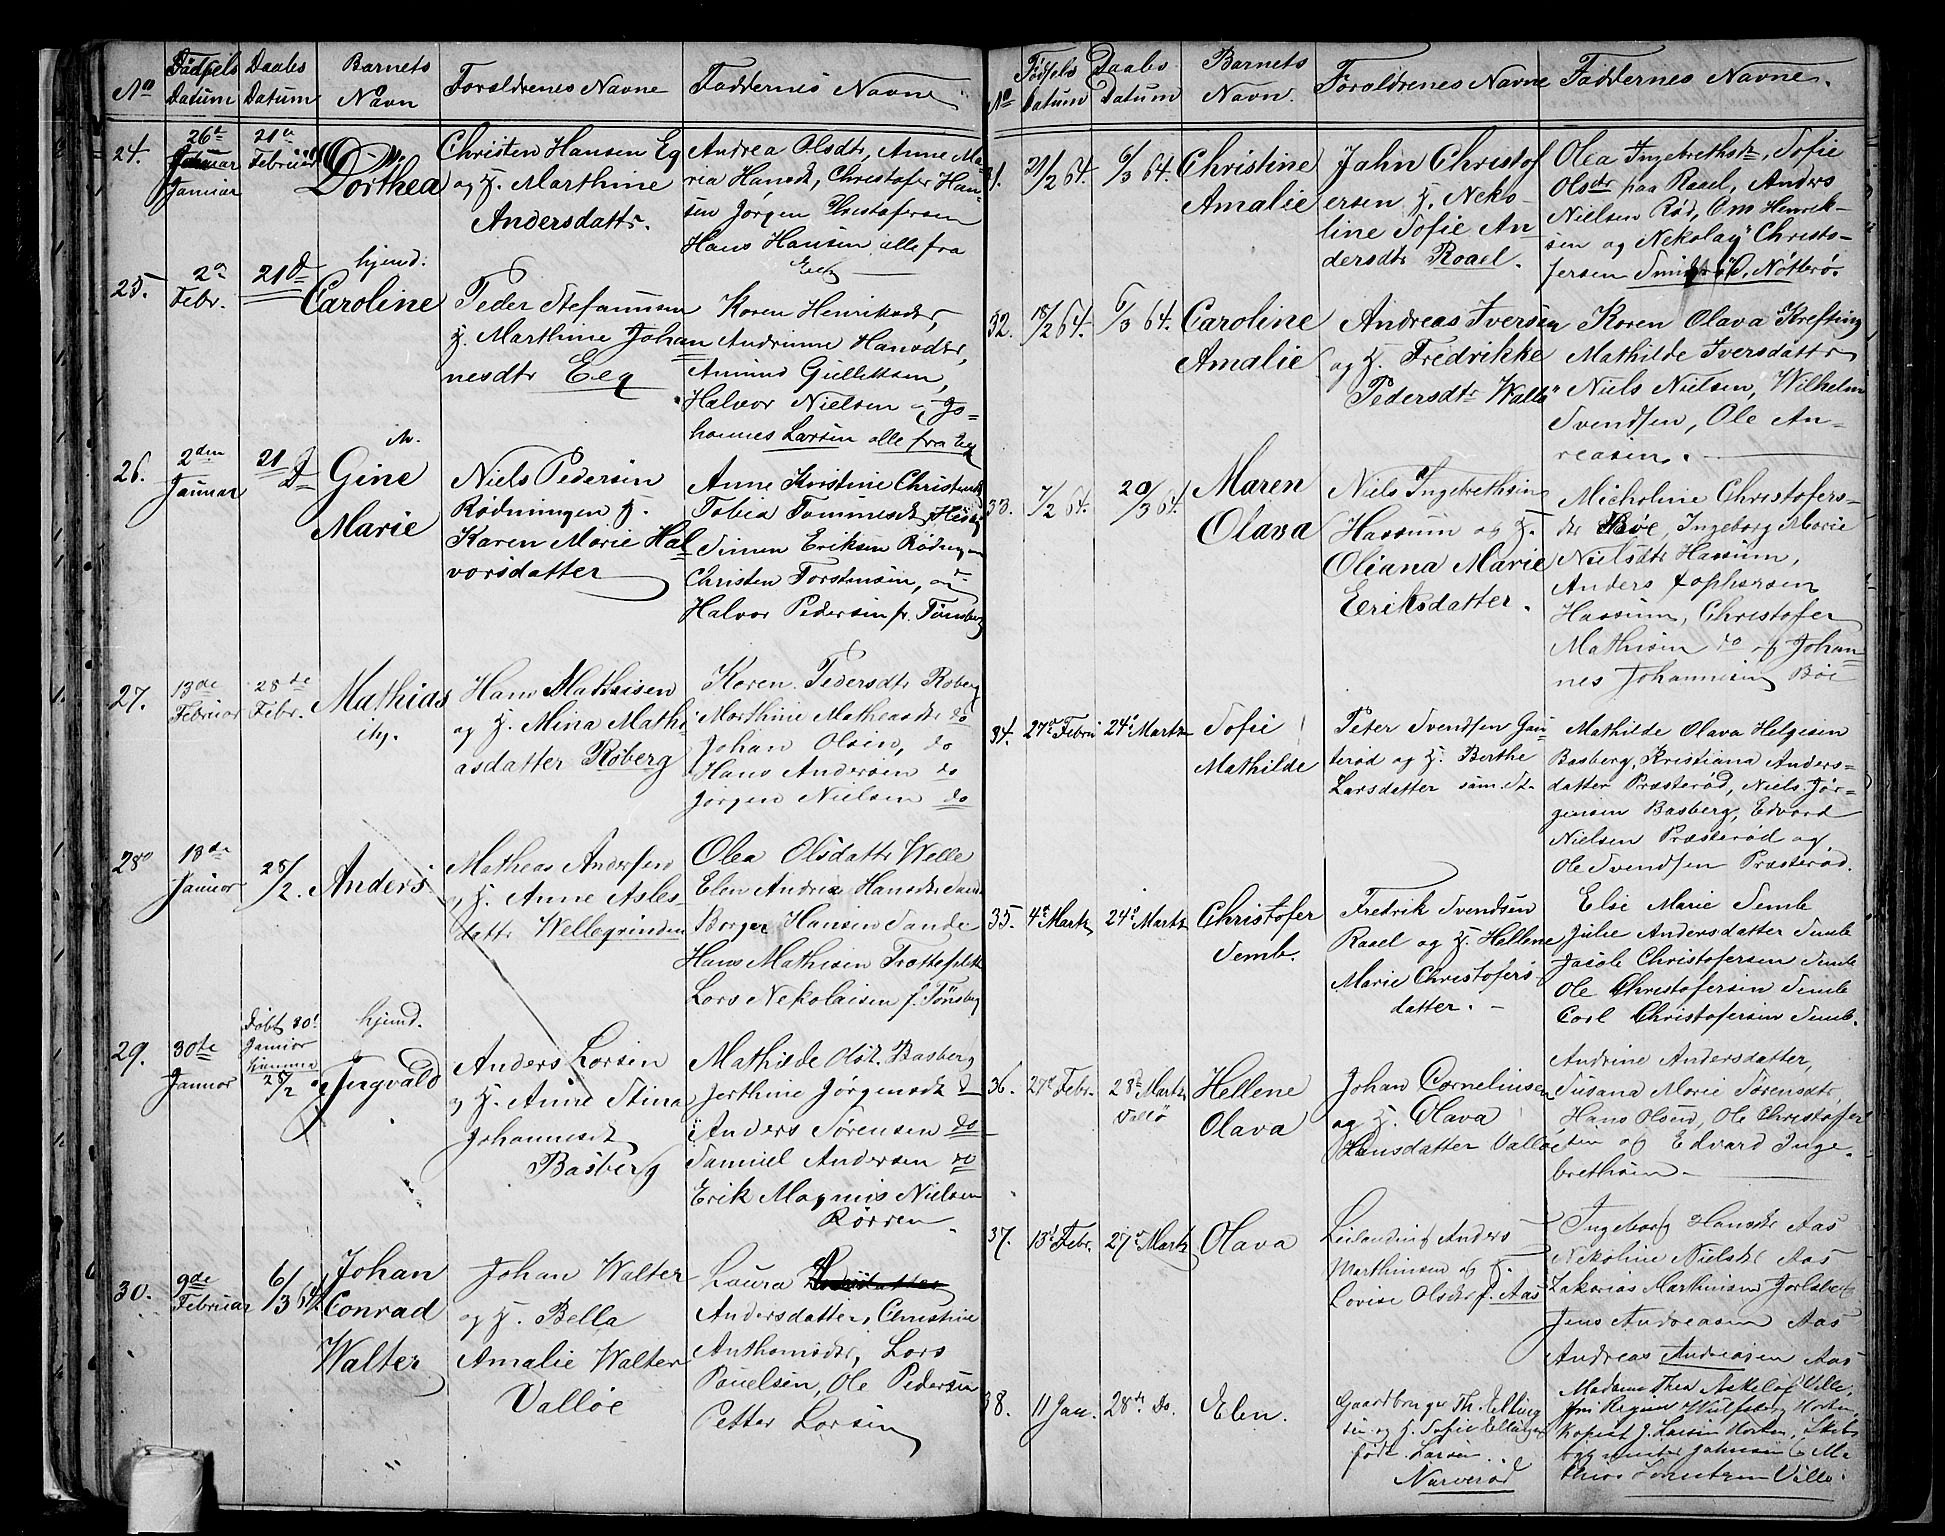 No
Födsels
Datum
Daabs
Datum
Barnets
Navn
Foraldrenes Navne
Faddernes Navne
24.
26de
Januar
21de
Februar
Dorthea
Christen Hansen Eq
og H. Marthine
Andersdattr.
Andrea Olsdtr, Anne Ma-
ria Hansdt, Christofer Han-
sen Jørgen Christofersen
Hans Hansen alle fra
25.
2de
Febr.
21 D
hjemd.
Caroline
Peder Stefanusen
H. Marthine Johan
nesdtr Eeg
Karen Henriksdtr,
Andrinne Hansdtr,
Amund Gulliksen,
Halvor Nielsen og Jo-
hannes Larsen alle fra Eeg
26.
2den
Januar
21 D
Gine
Marie
Niels Pedersen
Rødningen H.
Karen Marie Hal-
vorsdatter
Anne Kirstine Christensdt
Tobia Tommesdt
Simen Eriksen Rødningen
Christen Torstensen, og
Halvor Pedersen fr. Tønsberg
27.
13de
Februar
28de
Febr.
Mathias
Hans Mathisen
og H. Mina Mathi
asdatter Roberg
Karen Pedersdtr Roberg
Marthine Matheasdt do
Johan Olsen, do
Hans Andersen do
Jørgen Nielsen do
28
18de
Januar
28/2.
Anders
Matheas Andersen
og H. Anne Asles-
dattr Wellegrinden
Olea Olsdattr Welle
Elen Andrea Hansdt Sande
Borger Hansen Sande
Hans Mathisen
Lars Nekolaisen f. Tönsberg
29.
30te
Januar
Döbt 30'
Januar
28/2
hjemd.
Ingvald
Anders Larsen
og H. Anne Stina
Johannesdt
Basberg
Mathilde Olsdt. Basberg
Jerthine Jörgensdt D
Anders Sørensen do
Samuel Andersen do
Erik Magnus Nielsen
Rörren
30.
9de
Februar
6/3 64.
Johan
Conrad
Walter
Johan Walter
og H. Bella
Amalie Walter
Valløe
Laura
Andersdatter, Christine
Anthonisdtr, Lars
Pouelsen, Ole Pedersen
Petter Larsen
No
Födsels
Datum
Daabs
Datum
Barnets
Navn.
Foraldrenes Navne
Faddernes Navne.
31.
21/2 64.
6/3 64.
Christine
Amalie
Jahn Christof
ersen H. Neko-
line Sofie An
dersdtr Raael.
Olea Ingebrethsdt, Sofie
Olsdtr paa Raael, Anders
Nielsen Röd, Om Henrik-
sen og Nekolay Christo-
fersen Smidsröd, Nötterö.
32.
18/2 64.
6/3 64.
Caroline
Amalie
Andreas Iversen
og H. Fredrikke
Pedersdtr Wallø
Karen Olava Krefting
Mathilde Iversdattr
Niels Nielsen, Wilhelm
Svendsen, Ole An-
reasen.
33.
7/2 64.
20/3 64.
Maren
Olava
Niels Ingebrethsen
Hassum og H.
Oliana Marie
Eeriksdatter.
Micholine Christofers-
dtr Böe, Ingeborg Marie
Nielsdtr Hassum,
Anders Kophersen
Hassum, Christofer
Mathisen do og Johan-
nes Johannesen Böe
34.
27de Febru
24de Martz
Sofie
Mathilde
Peter Svendsen Gau-
teröd og H. Berthe
Larsdatter sam. St.
Mathilde Olava Helgesen
Basberg, Kristiana Anders-
datter Præsteröd, Niels Jör-
gensen Basberg, Edvard
Nielsen Præsteröd og
Ole Svendsen Præsteröd.
35.
4de Martz
24de Martz
Christofer
Semb.
Fredrik Svendsen
Raael og H. Hellene
Marie Christofers
datter.
Else Marie Semb
Julie Andersdatter Semb
Jacob Christofersen Semb
Ole Christofersen Semb
Carl Christofersen Semb.
36.
27de Febr.
28de Martz
Vallö
Hellene
Olava
Johan Corneliusen
og H. Olava
Hansdatter Valløe
Andrine Andersdatter,
Susana Marie Sørensdtr,
Hans Olsen, Ole Christoffer
sen og Edvard Inge-
brethsen
37.
13de Febr.
27de Martz
Olava
Leilending Anders
Marthinsen og H.
Lovise Olsdtr f. Aas
Ingeborg Hansdtr Aas
Nekoline Nielsdtr Aas
Zakarias Marthinsen Jarlsberg
Jens Andreasen Aas
Andreas Andreasen Aas
38.
11 Jan.
28de Do.
Elen.
Gaardbruger Th. Elling
sen og H. Sofie Ellingsen
födt Larsen
Narveröd
Madame Thea Askelöf Ville,
Jm Regine Wulfsberg Horten,
Kopist J. Larsen Horten, Skibs
bygmester Johnsen &